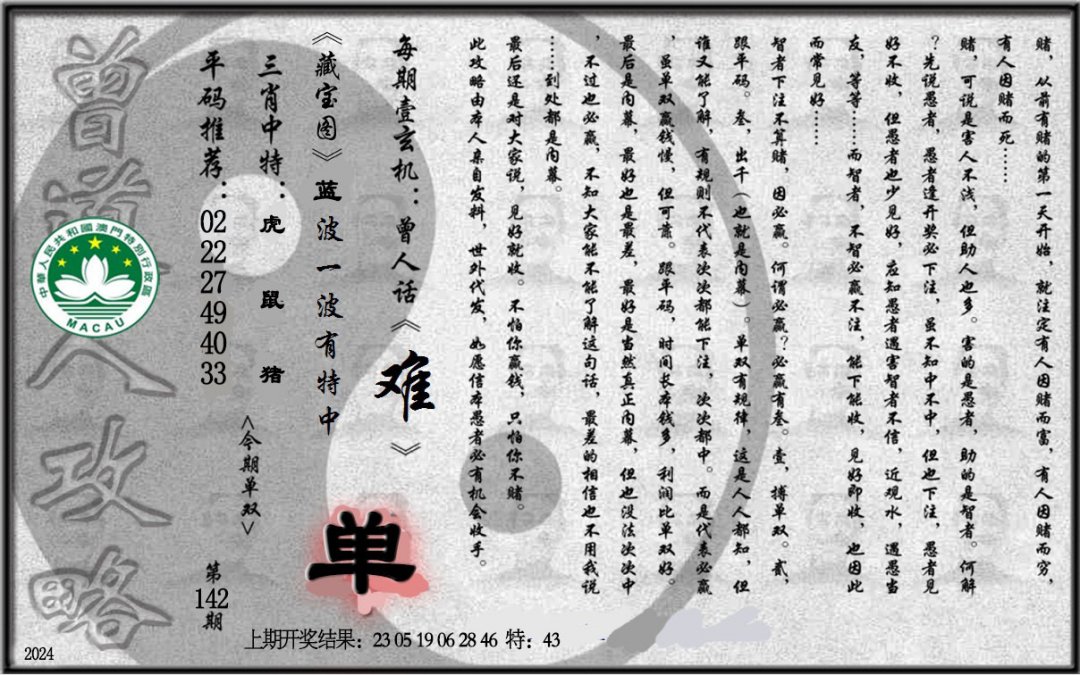 赌，从前有赌的第一天开始，就注定有人因赌而富，有人因赌而穷，
有人因赌而死……
赌，可说是害人不浅，但助人也多。害的是愚者，助的是智者。何解
？先说愚者，愚者逢开奖必下注，虽不知中不中，但也下注，愚者见
好不收，但愚者也少见好，应知愚者遇害智者不信，近观水，遇愚当
友，等等……而智者，不智必赢不注，能下能收，见好即收，也因此
而常见好……
智者下注不算赌，因必赢。何谓必赢？必赢有叁。壹，搏单双。贰，
跟平码。叁，出千（也就是内幕）。单双有规律，这是人人都知，但
谁又能了解，有规则不代表次次都能下注，次次都中。而是代表必赢
，虽单双赢钱慢，但可靠。跟平码，时间长本钱多，利润比单双好。
最后是内幕，最好也是最差，最好是当然真正内幕，但也没法次次中
，不过也必赢，不知大家能不能了解这句话，最差的相信也不用我说
……到处都是内幕。
最后还是对大家说，见好就收。不怕你赢钱，只怕你不赌。
此攻略由本人亲自发料，世外代发，如愿信本愚者必有机会收手。
每期壹玄机：曾人话《难》
《藏宝图》蓝波一波有特中
三肖中特：虎 鼠 猪
平码推荐：02 22 27 49 40 33
<今期单双>
单
第142期
曾道人攻略
中華人民共和國澳門特別行政區
MACAU
上期开奖结果：23 05 19 06 28 46 特：43
2024